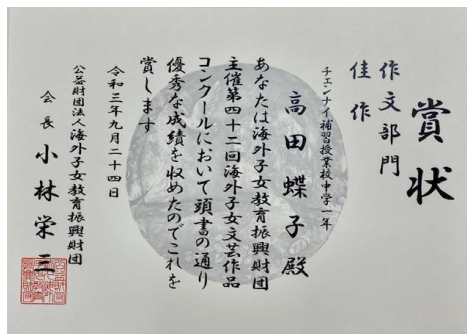 賞状
作文部門
佳作
チェンナイ補習授業校中学一年
高田蝶子殿
あなたは海外子女教育振興財団
主催第四十二回海外子女文芸作品
コンクールにおいて頭書の通り
優秀な成績を収めたのでこれを
賞します
令和三年九月二十四日
公益財団法人海外子女教育振興財団
会長 小林栄三